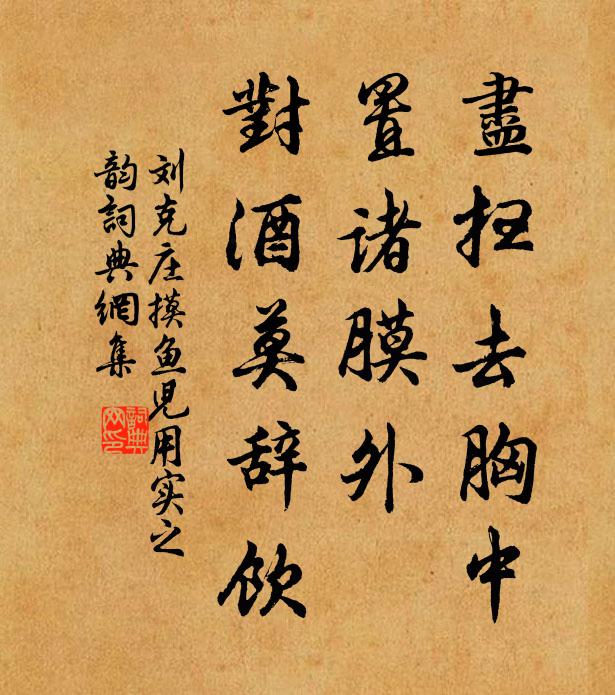 盡扫去胸中
置诸膜外
對酒莫辞飲
刘克庄摸鱼児用实之
韵詞典網集
詞典网印